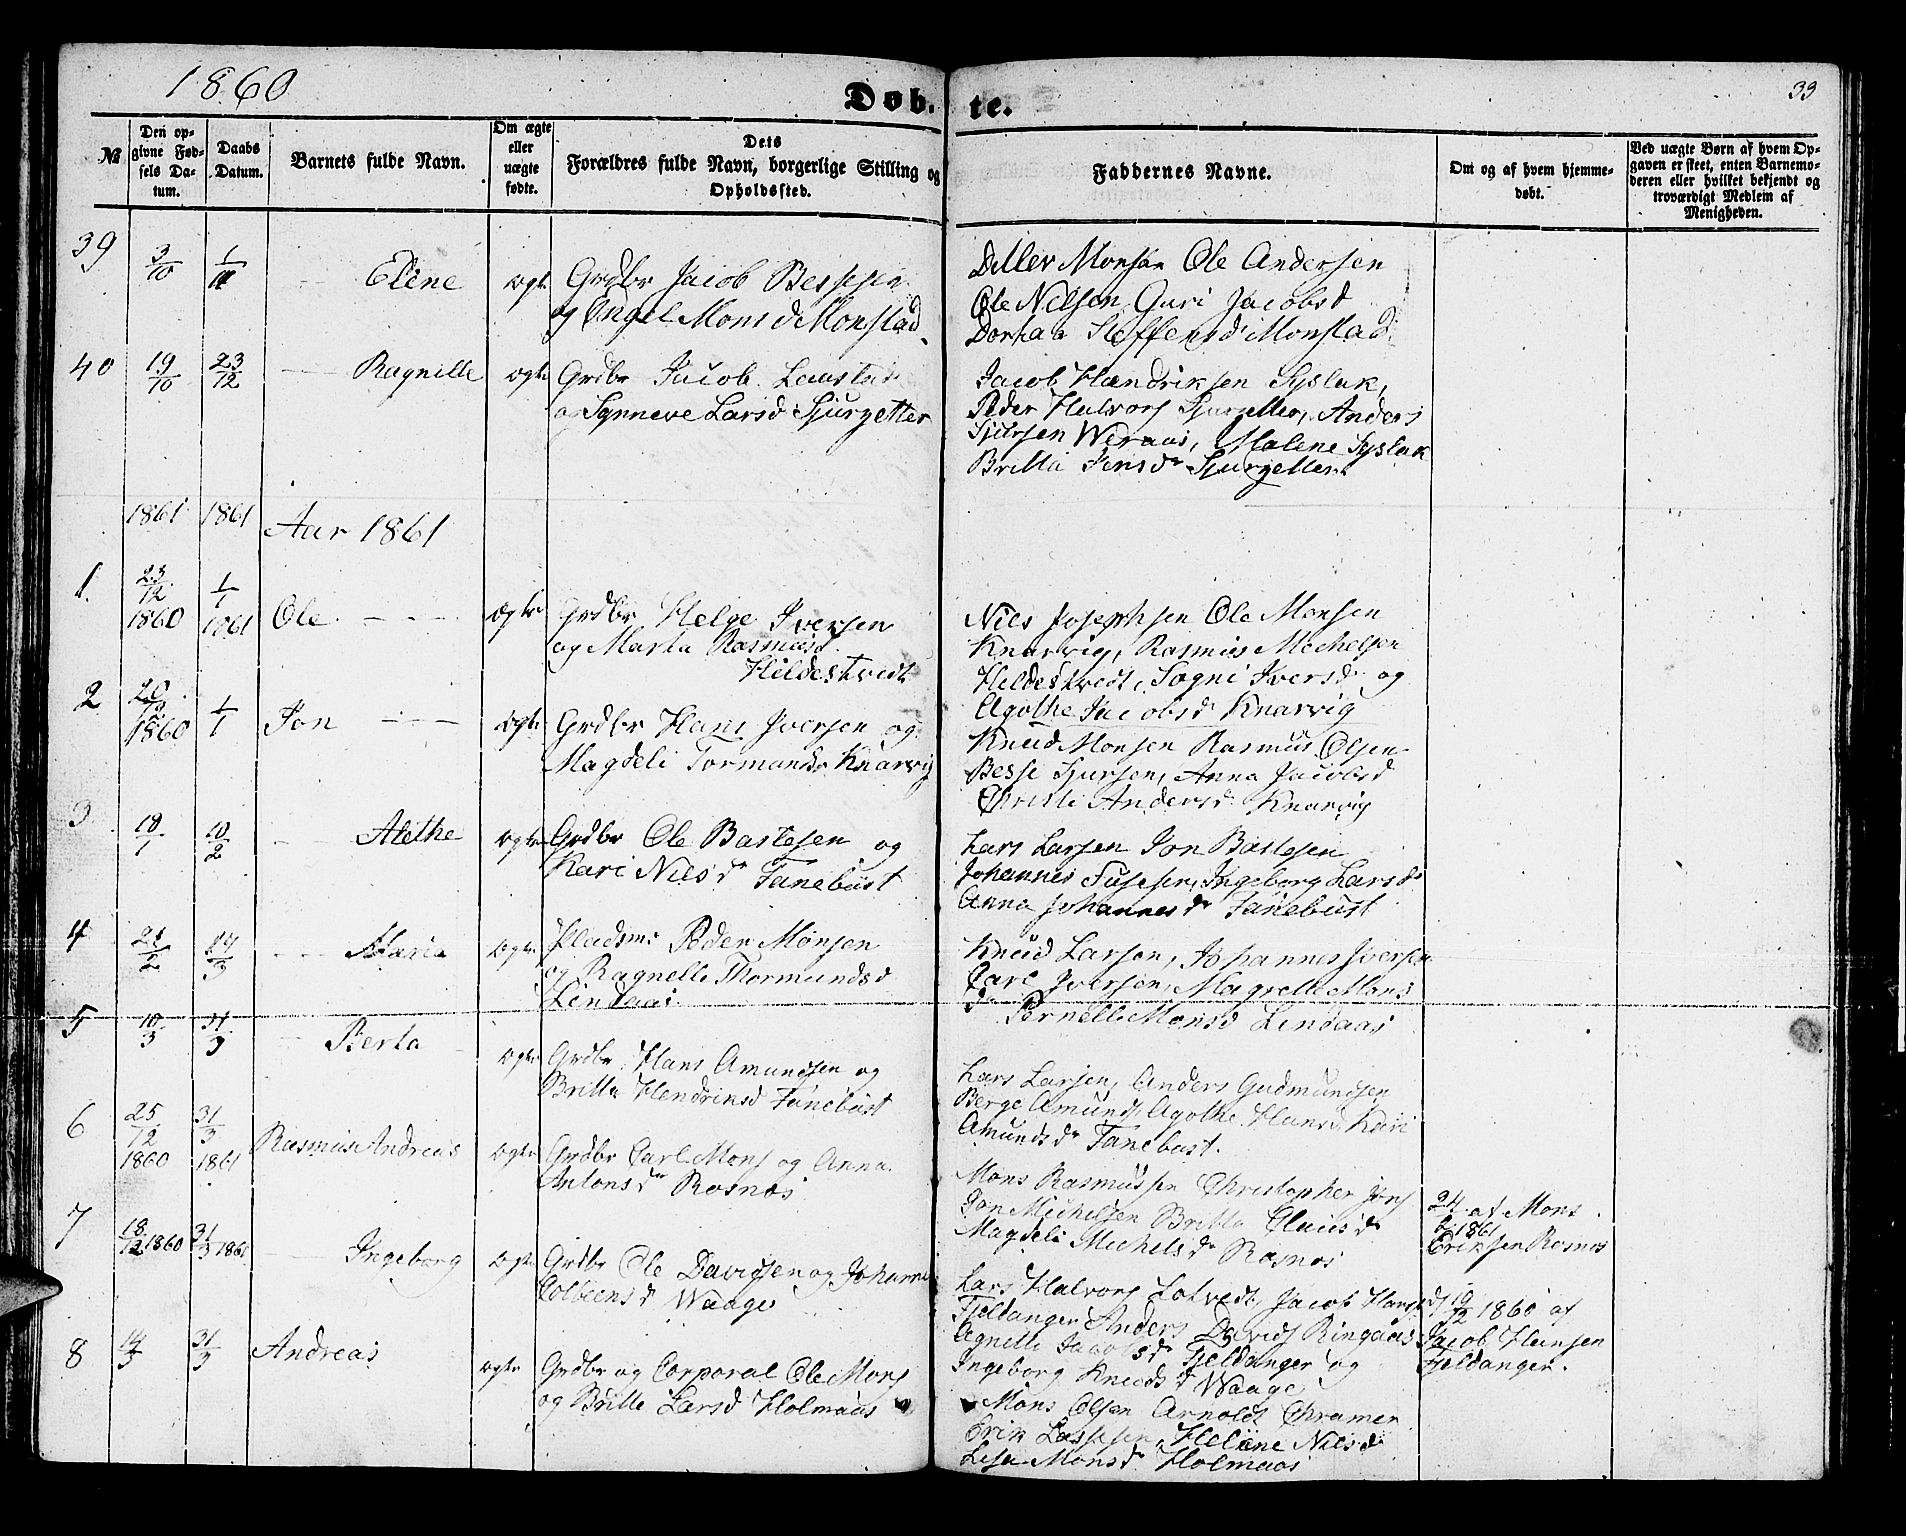 1860
Døb- te.
33
№
Den op-
givne Fød-
sels Da-
tum.
Daabs
Datum.
Barnets fulde Navn.
Om ægte
eller
uægte
fødte.
Dets
Forældres fulde Navn, borgerlige Stilling og
Opholdssted.
Faddernes Navne.
Om og af hvem hjemme-
døbt.
Ved uægte Børn af hvem Op-
gaven er skeet, enten Barnemo-
deren eller hvilket bekjendt og
troværdigt Medlem af
Menigheden.
39 3/10 Elene ægte Grdbr Jacob Bessesen
og Engel Mons d Monstad
Monsen Ole Andersen
Ole Nilsen Guri Jacobsd
Steffensd Monstad
40 19/10 23/12 Ragnille ægte Grdbr Jacob
og Synneve Larsd Sjursetter
Jacob Hendriksen Syslak,
Peder Halvors Sjursetter, Anders
Sjursen Weraas, Malene Syslak
Britta Jensdr Sjursetter
1861 1861 Aar 1861
1. 23/12 1860 1/1 1861 Ole ægte Grdbr Helge Iversen
og Marta Rasmusd
Hildestvedt
Niels Josephsen Ole Monsen
Knarvig, Rasmus Michelsen
Heldestvedt, Sogni Iversdr og
Agothe Jacobsd Knarvig
2 1860 1/1 Jon ægte Grdbr Hans Iversen og
Magdeli Tormundsdr Knarvig
Knud Monsen Rasmus Olsen
Besse Sjursen, Anna Jacobsd
Christi Andersd Knarvig
3 18/1 10/2 Alethe ægte Grdbr Ole Bastesen og
Kari Nielsdr Fanebust
Lars Larsen Jon Bastesen
Johannes Ingeborg Larsdr
Anna Johannesdr Fanebust
4 21/2 17/3 Maria ægte Pladsm: Peder Monsen
og Ragnelle Thormundsd
Lindaas
Knud Larsen, Johannes Iversen
Carl Iversen, Magrelle Mons
dr Pernelle Monsd Lindaas
5 10/3 31/3 Berta ægte Grdbr Hans Amundsen og
Britta Hendriksd Fanebust
Lars Larsen, Anders Gudmundsen
Berge Amunds, Agothe Hansd, Kari
Amundsdr Fanebust.
6 25/12 1860 31/3 1861 Rasmus Andreas ægte Grdbr Carl Mons og Anna
Antonsdr Rosnes
Mons Rasmussen Christopher Jons
Jon Michelsen Britta Clausdr
Magdeli Michelsdr Rosnes
24 1861 af Mons
Eriksen Rosnes
7 18/12 1860 31/3 1861 Ingeborg ægte Grdbr Ole Davidsen og Johanne
Colbensd Waage
Lars Halvors Lotvedt, Jacob Hans
Fjeldanger Anders Davids Ringaas
Agnelle Jacobsdr Fjeldanger og
Ingeborg Knudsd Waage
19/12 1860 af
Jacob Hansen
Fjeldanger.
8 14/3 31/3 Andreas ægte Grdbr og Corporal Ole Mons
og Britte Larsd Holmaas
Mons Olsen Arnoldt Chramer
Erik Lassesen, Helene Nilsdr
Lisa Monsdr Holmaas